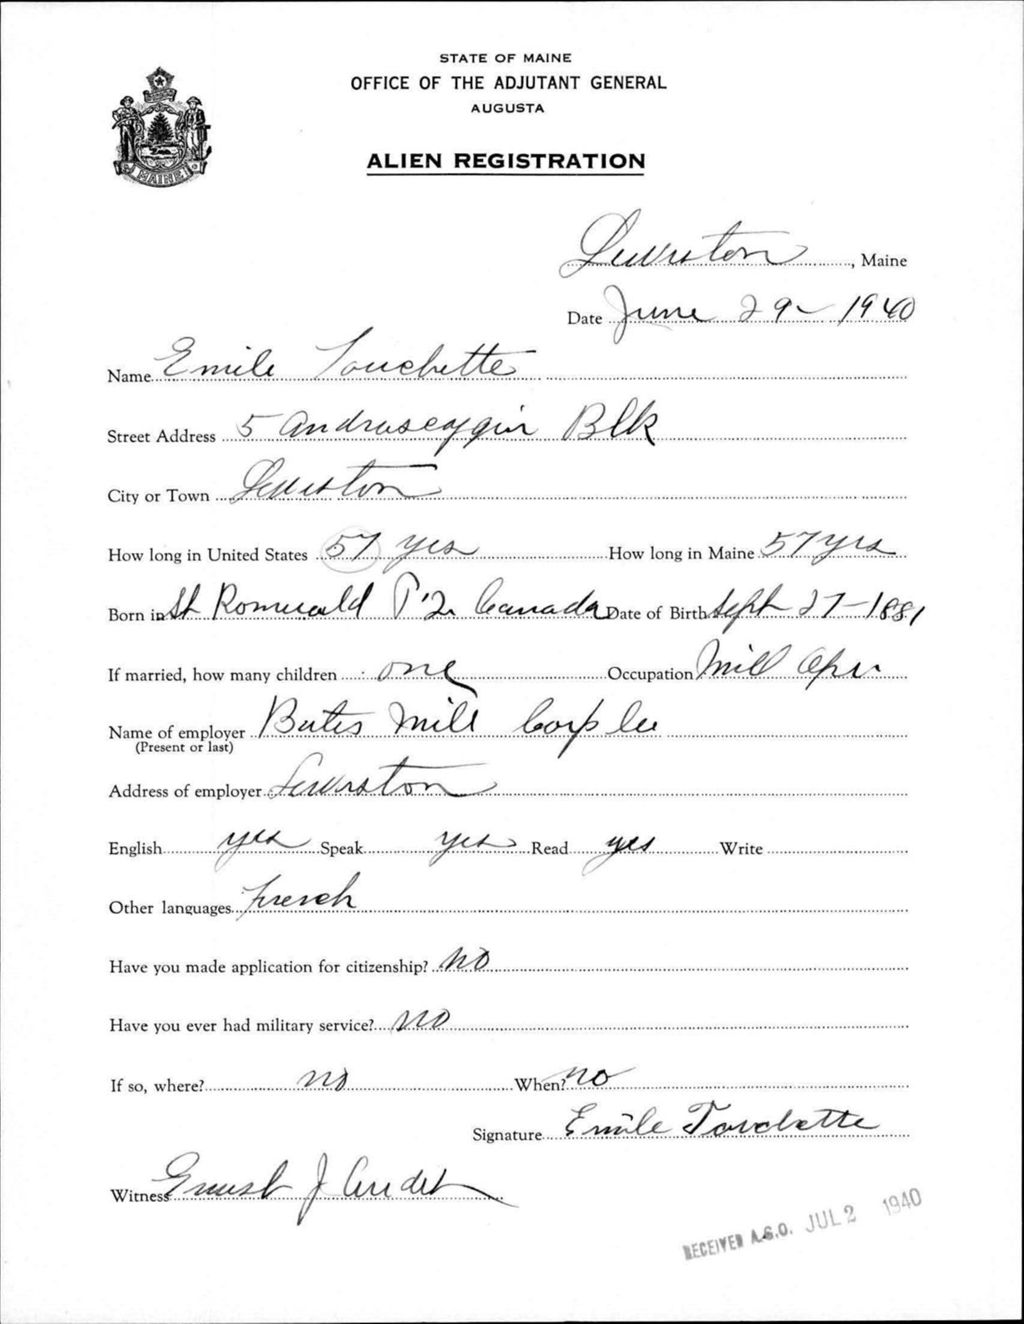 STATE OF MAINE
OFFICE OF THE ADJUTANT GENERAL
AUGUSTA
MAINE
ALIEN REGISTRATION
Lewiston, Maine
Date June 29 - 1940
Name Emile Touchette
Street Address 5 Androscoggin Blk
City or Town Lewiston
How long in United States 57 yrs How long in Maine 57 yrs
Born in St Romuald P.Q. Canada Date of Birth Sept 27-1881
If married, how many children one Occupation Mill Oper
Name of employer Bates Mill Corp
(Present or last)
Address of employer Lewiston
English yes Speak yes Read yes Write
Other languages French
Have you made application for citizenship? no
Have you ever had military service? no
If so, where? no When? no
Signature Emile Touchette
Witness Ernest J Audet
RECEIVED A.G.O. JUL 2 1940